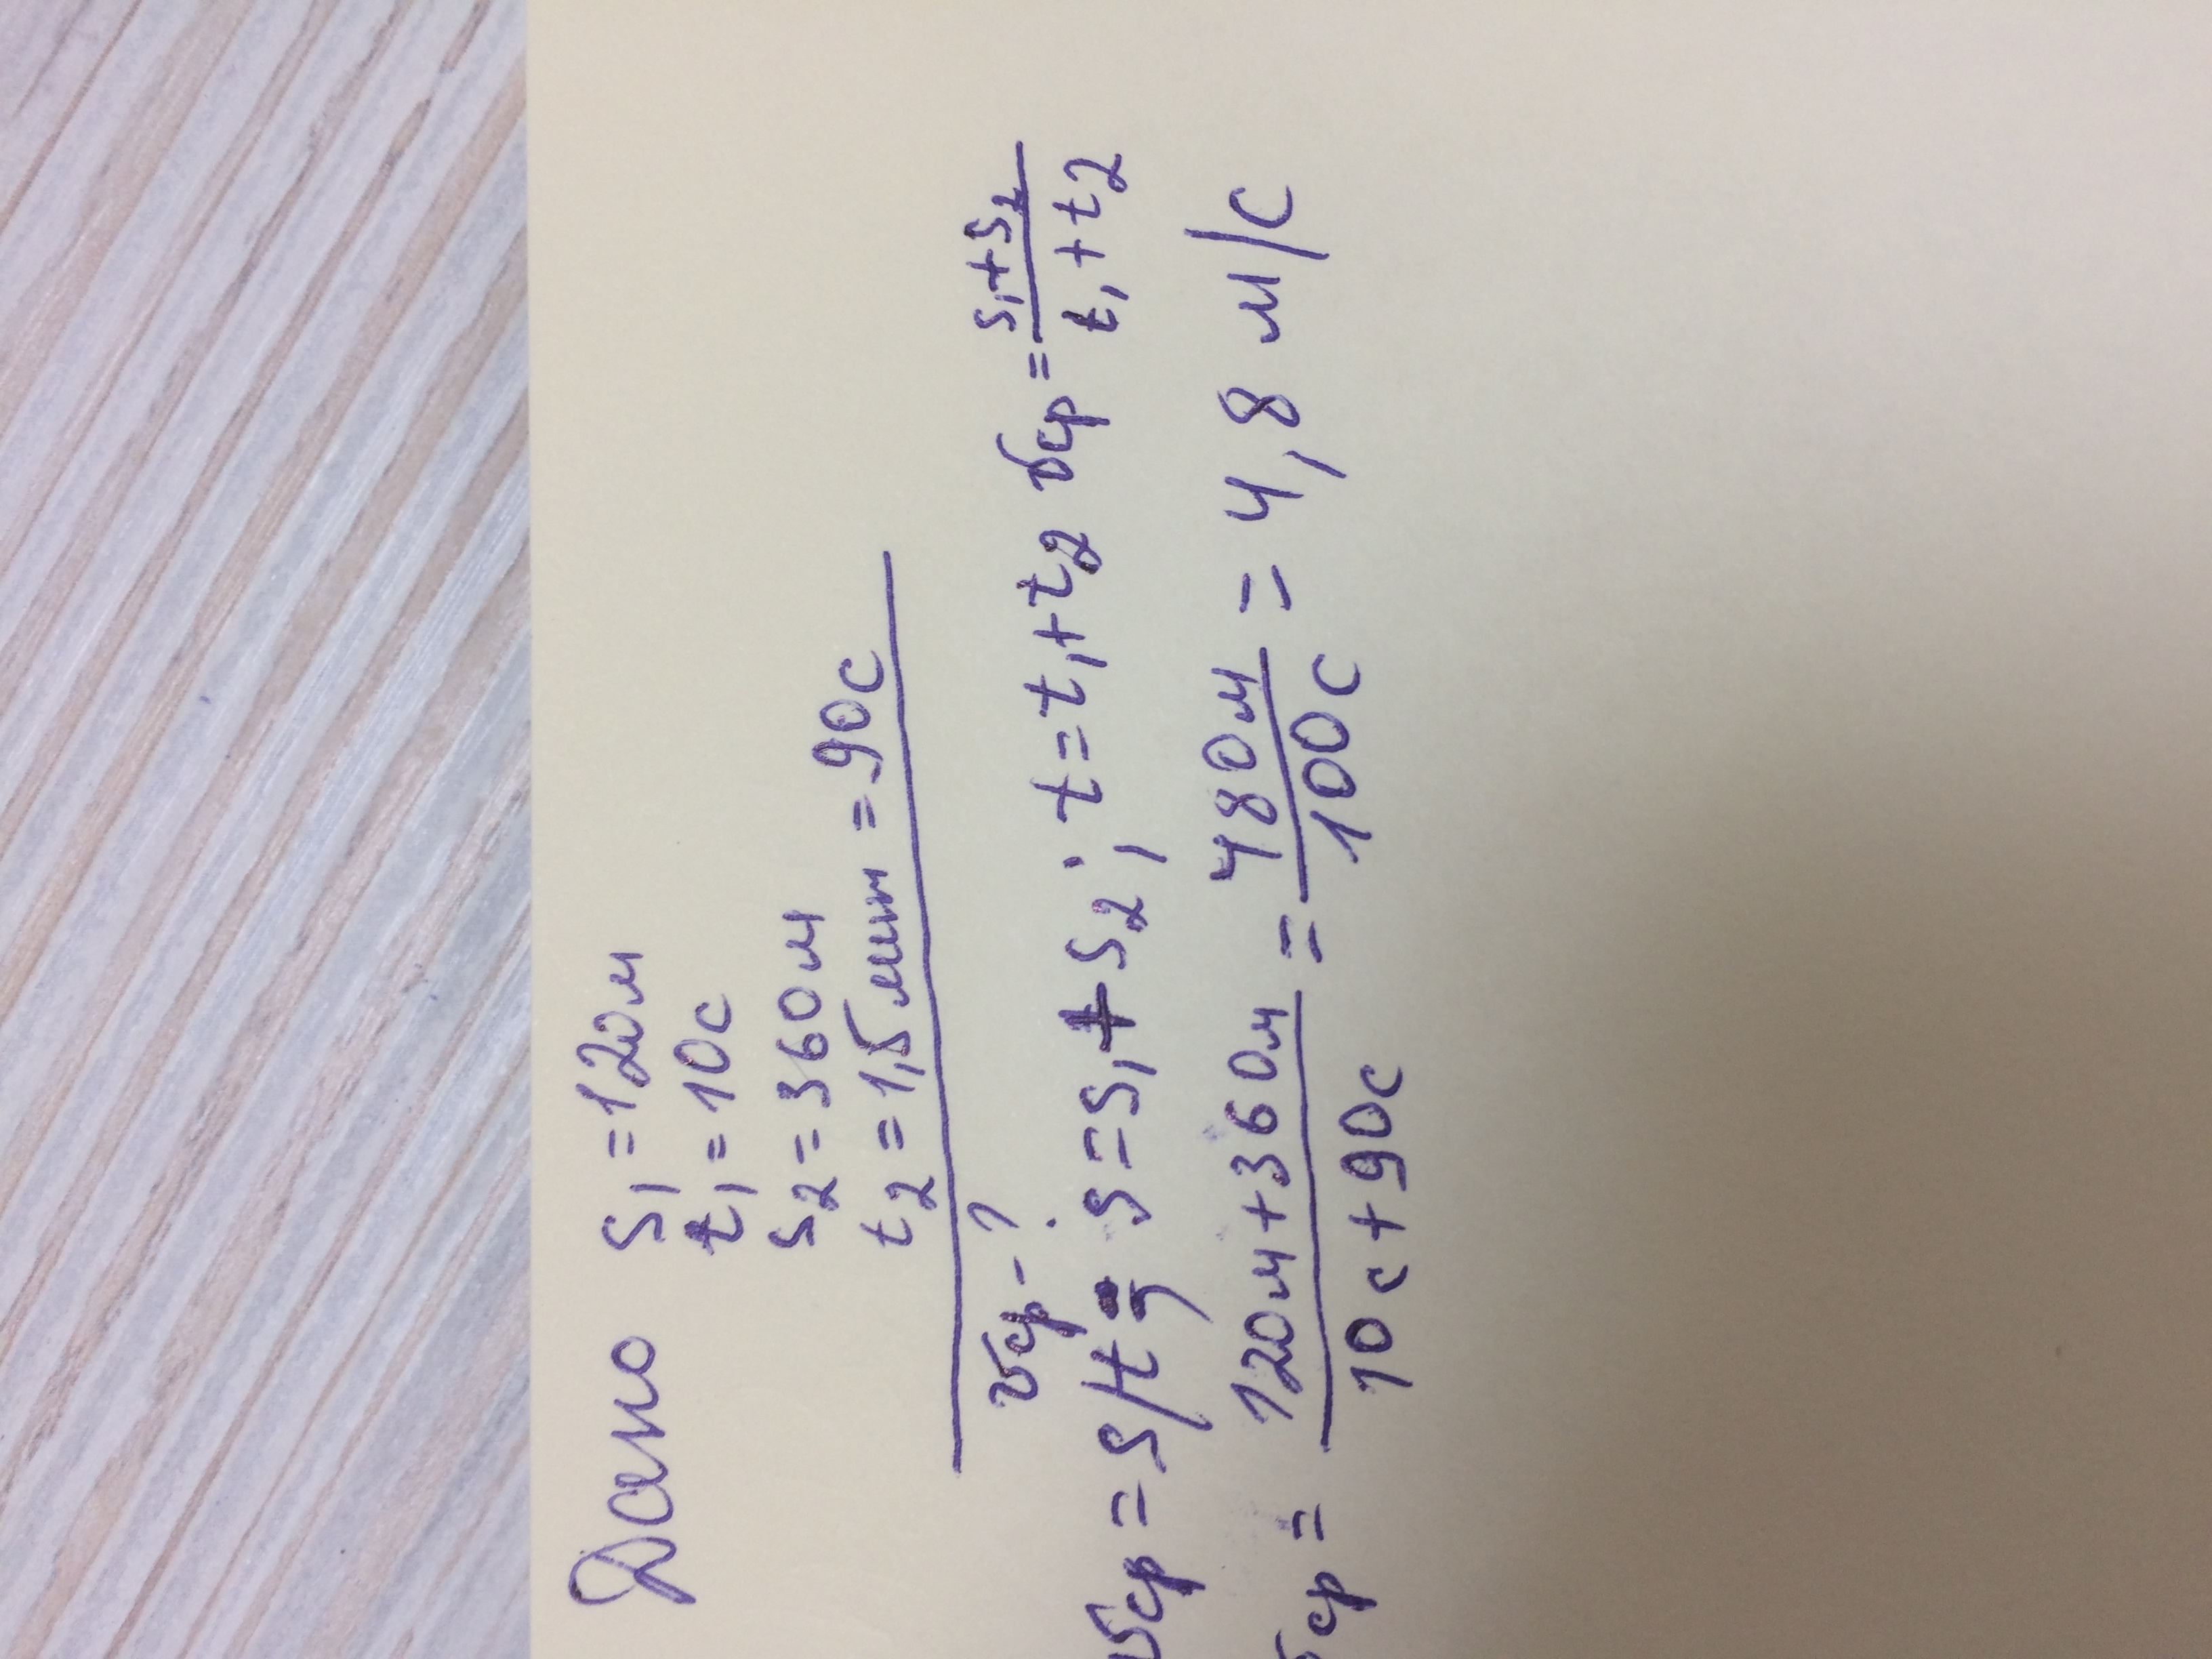 Дано S₁=120м
t₁=10с
S₂=360м
t₂=1,5мин=90с
vср-?
vср=S/t; S=S₁+S₂; t=t₁+t₂ vср=(S₁+S₂)/(t₁+t₂)
vср=(120м+360м)/(10с+90с)=480м/100с=4,8 м/с